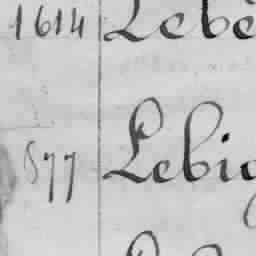 1614 Lebe
577 Lebig